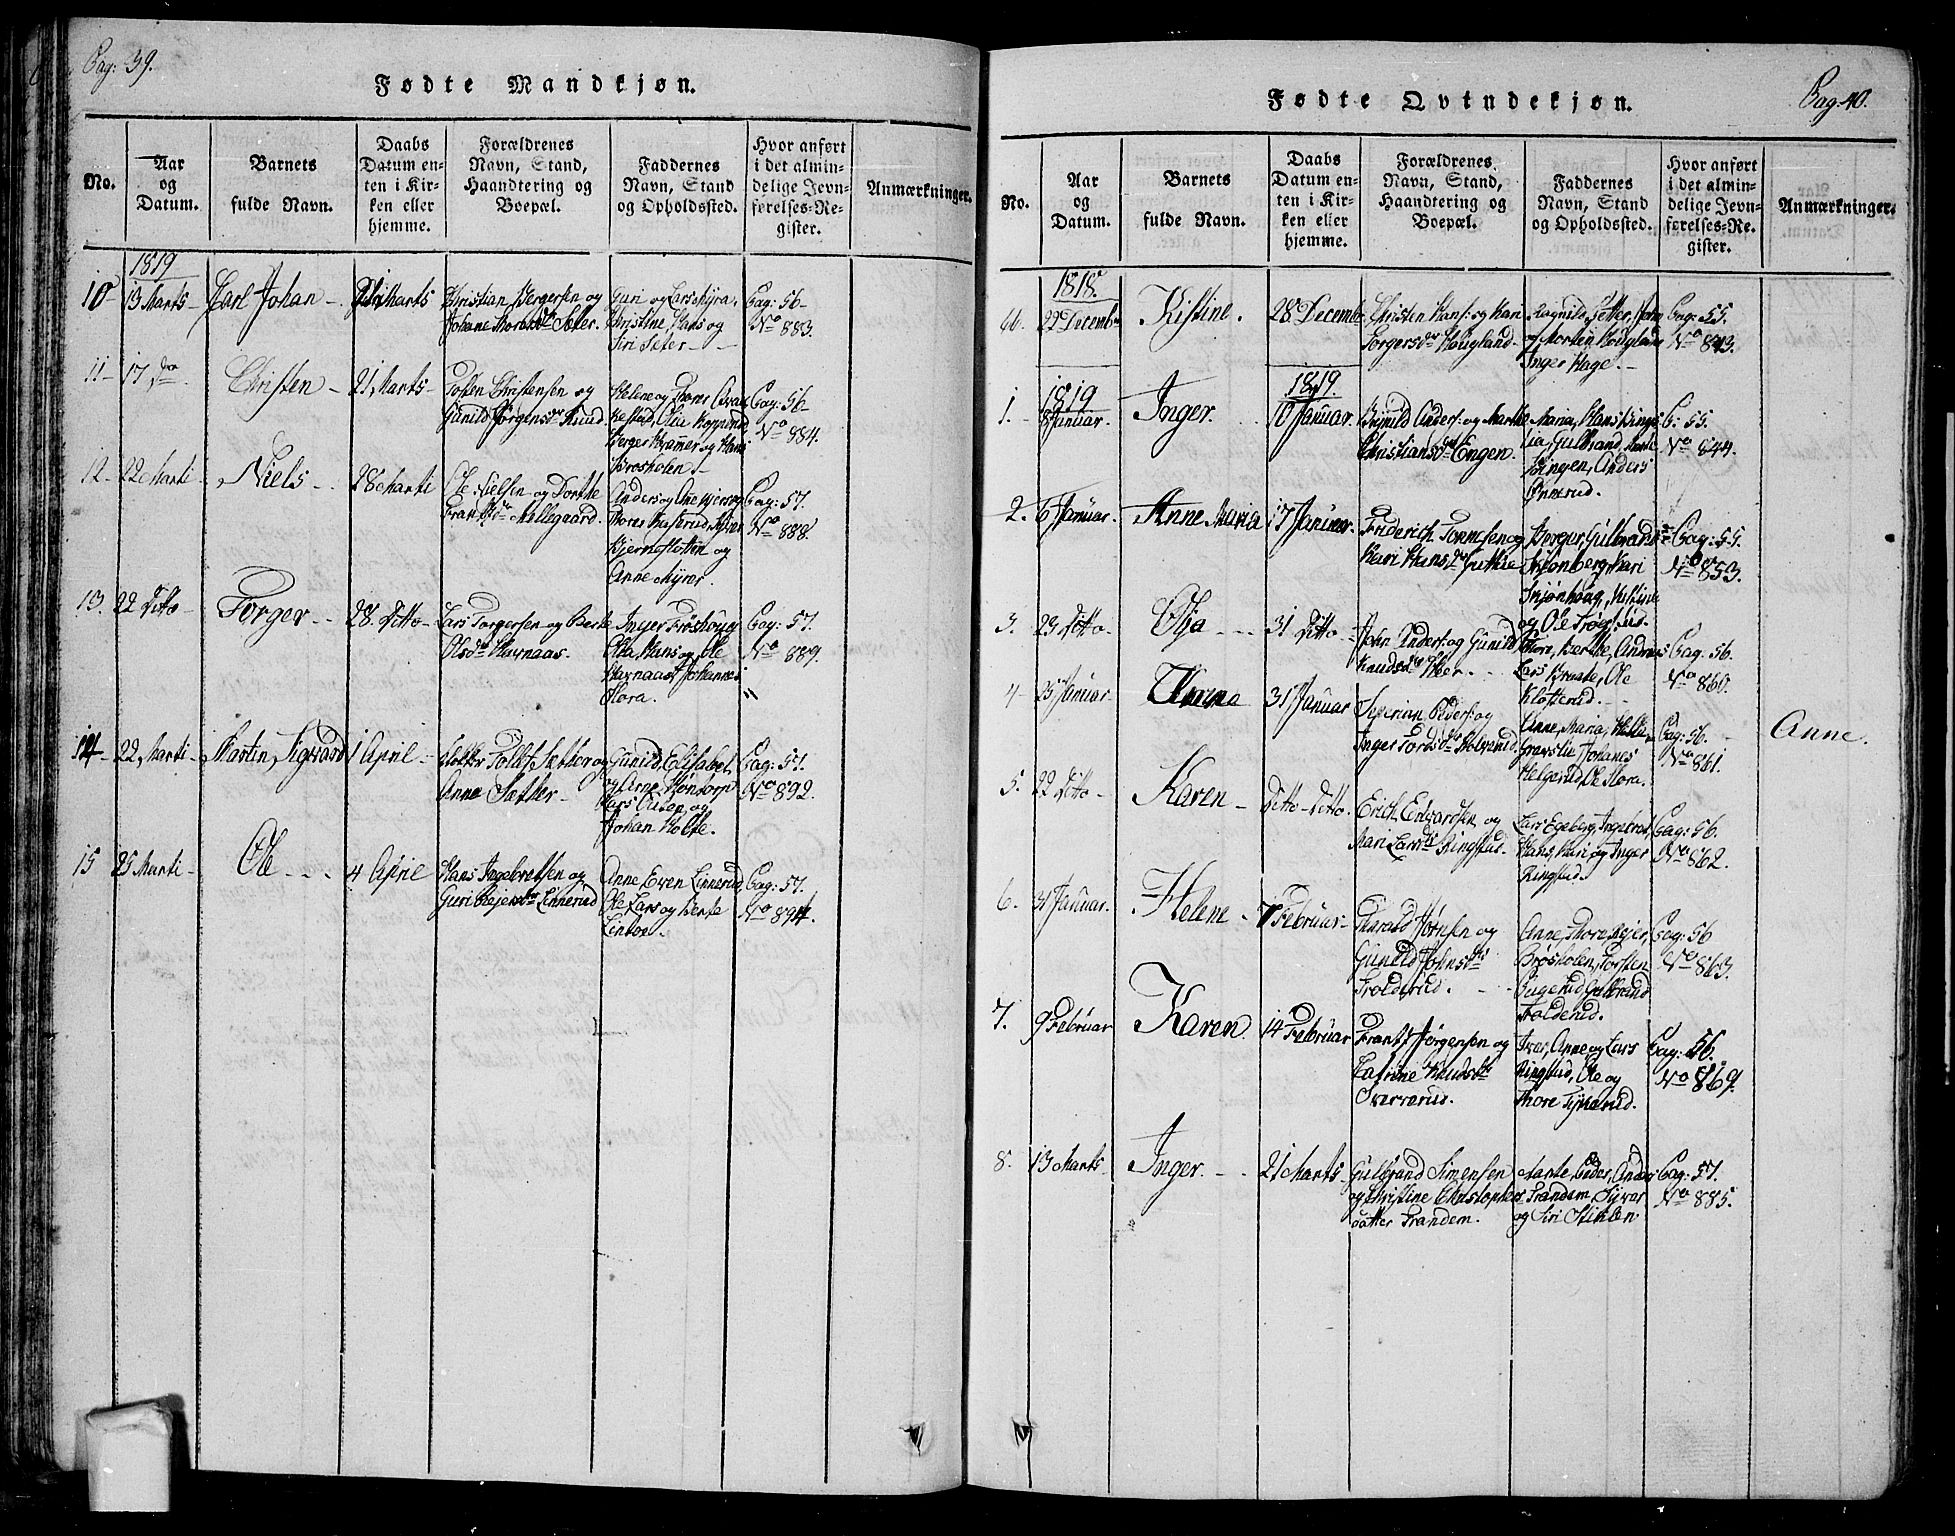 Pag: 39.
Fødte Mandkjøn.
No.
Aar
og
Datum.
Barnets
fulde Navn.
Daabs
Datum en-
ten i Kir-
ken eller
hjemme.
Forældrenes
Navn, Stand,
Haandtering og
Boepæl.
Faddernes
Navn, Stand
og Opholdssted.
Hvor anført
i det almin-
delige Jevn-
førelses-Re-
gister.
Anmærkninger.
1819
10 13 Marts Carl Johan 21 Marts
Christian Bergersen og
Johane
Guri og Lars Myra,
Christine, Hans og
Siri Sæter
Pag: 56
No 883.
11 17 do Christen 21 Marts
Christensen og
Gunild Jørgensdr
Helene og Thores
Berger Kramer og Hans
Brosholen
Pag: 56
No 884.
12 22 Marti Niels 28 Marti
Ole Nielsen og Dorthe
Frantsdr Møllegaard.
Anders og Ane
Thores
og
Anne Myrer.
Pag: 57.
No 888.
13. 22 Ditto Torger 28. Ditto
Lars Torgersen og Berte
Olsdr Harnaas.
Inger Frøshoug
Olia Hans og Ole
Harnaas, Johannes
Flora.
Pag: 57.
No 889.
14 22 Marti Martin Sigvard 1 April
Sæther og
Anne Sæther
Gunild, Elisabet,
og Arne Møntorp
Lars Olsen og
Johan Holte.
Pag: 57.
No 892.
15 25 Marti Ole 4 April
Hans Ingebretsen og
Guri Reiersdr Linnerud
Anne Even Linnerud
Ole Lars og Berte
Lintoe
Pag: 57.
No 894.
Pag. 40.
Fødte Qvindekjøn.
No.
Aar
og
Datum.
Barnets
fulde Navn.
Daabs
Datum en-
ten i Kir-
ken eller
hjemme.
Forældrenes
Navn, Stand,
Haandtering og
Boepæl.
Faddernes
Navn, Stand
og Opholdssted.
Hvor anført
i det almin-
delige Jevn-
førelses-Re-
gister.
Anmærkninger.
1818.
66. 22 Decembr Kistine. 28 Decembr
Christen Hans: og Kari
Torgersdr Hougland
Ragnild, John
og Morten Hougland
Inger Hage.
Pag: 55.
No 843.
1819 1819
1. 8 Januar. Inger. 10 Januar.
Anders: og Marthe
Christiansdr Engen.
Maria, Hans
Gulbrand
Bingen, Anders
Ønnerud.
P: 55.
No 844.
2. 6 Januar. Anne Maria 17 Januar.
Friderich Tønnesen og
Kari Hansdr
Berger, Gulbrand
Kari
Kistine
og Ole
Pag: 55.
No 853.
3. 23 Ditto Olia 31 Ditto
John Anders: og Gunild
Knudsdr
Thore, Berthe, Andreas
Lars Braate, Ole
Kløfterud.
Pag. 56.
No 860.
4 25 Januar. Karen 31 Januar
Peders: og
Inger Tordsdr
Anne, Maria, Helle
Johanes
Helgerud, Ole Flora.
Pag: 56.
No 861.
Anne.
5. 22 Ditto Karen Ditto Ditto.
Erich Endvardsen og
Mari Larsdr Ringsrud.
Lars Egeberg, Ingebret,
Hans, Kari og Inger
Ringsrud.
Pag: 56.
No 862.
6. 31 Januar. Helene 7 Februar
Harald Jørnsen og
Gunild Johnsdr
Frolderud.
Anne, Thore, Reier,
Brøsholen, Torsten
Gulbrand
Frolderud.
Pag: 56
No 863.
7. 9 Februar Karen 14 Februar
Frants Jørgensen og
Catrine Knudsdr
Sverrerud.
Iver, Anne og Lars
Ringsrud, Ole og
Thore
Pag: 56.
No 869.
8. 13 Marts Inger 21 Marts
Gulbrand Simensen
og Kristine Christophers
datter Trandem.
Marte, Peder, Anders
Trandem, Syver
og Siri Stiklen
Pag: 57.
No 885.